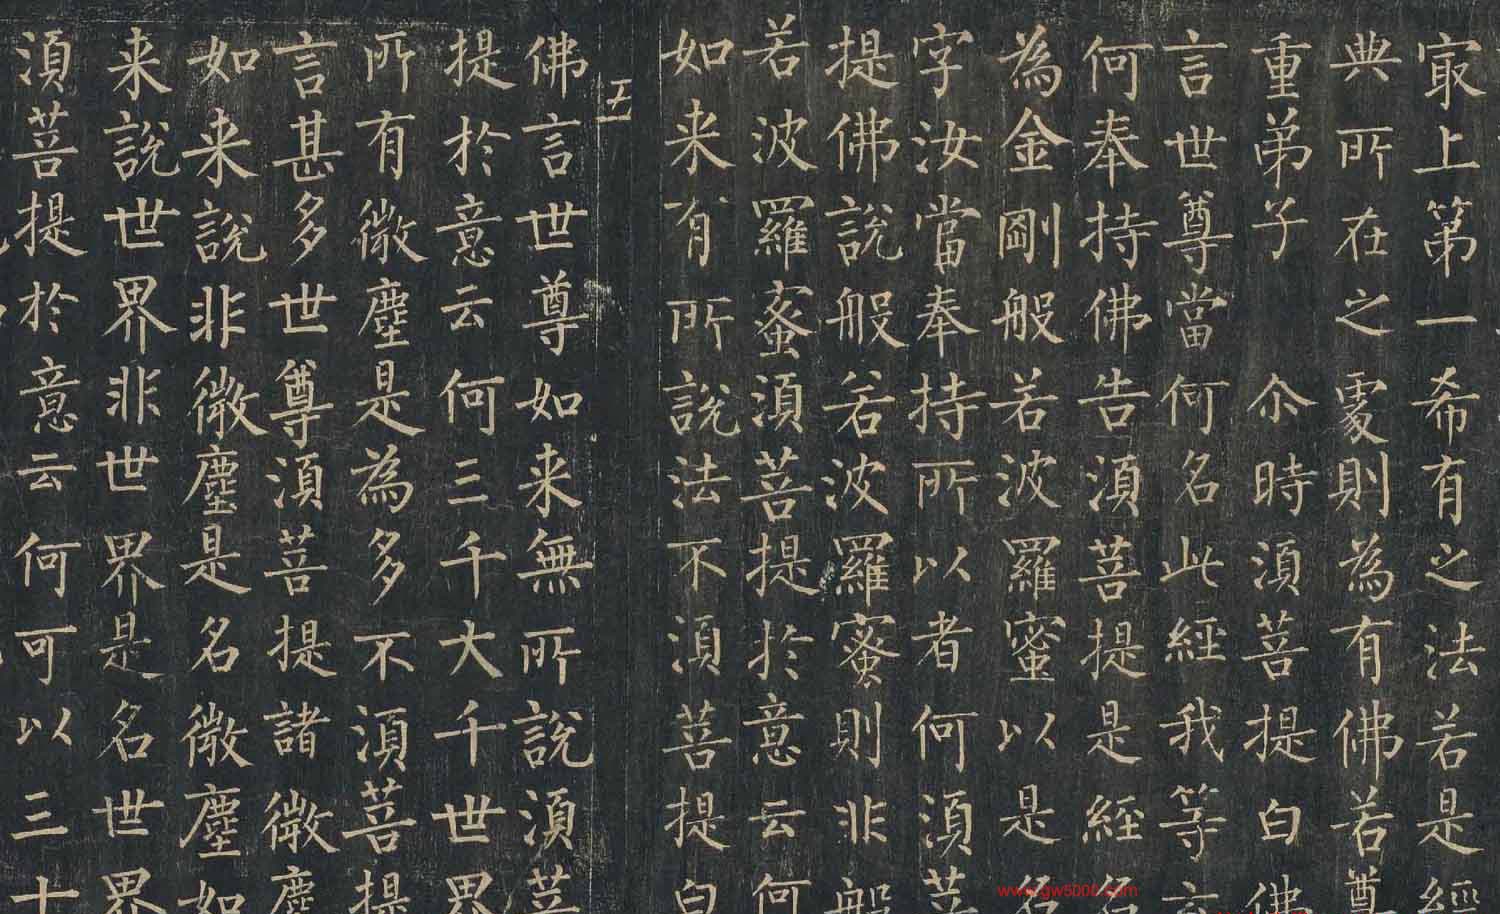 冣上第一希有之法若是經
典所在之處則為有佛若尊
重弟子尒時湏菩提白佛
言世尊當何名此經我等云
何奉持佛告湏菩提是經名
為金剛般若波羅蜜以是名
字汝當奉持所以者何湏菩
提佛說般若波羅蜜則非般
若波羅蜜湏菩提於意云何
如来有所說法不湏菩提白
五
佛言世尊如来無所說湏菩
提於意云何三千大千世界
所有微塵是為多不湏菩提
言甚多世尊湏菩提諸微塵
如来說非微塵是名微塵如
来說世界非世界是名世界
湏菩提於意云何可以三十
www.gw5000.com